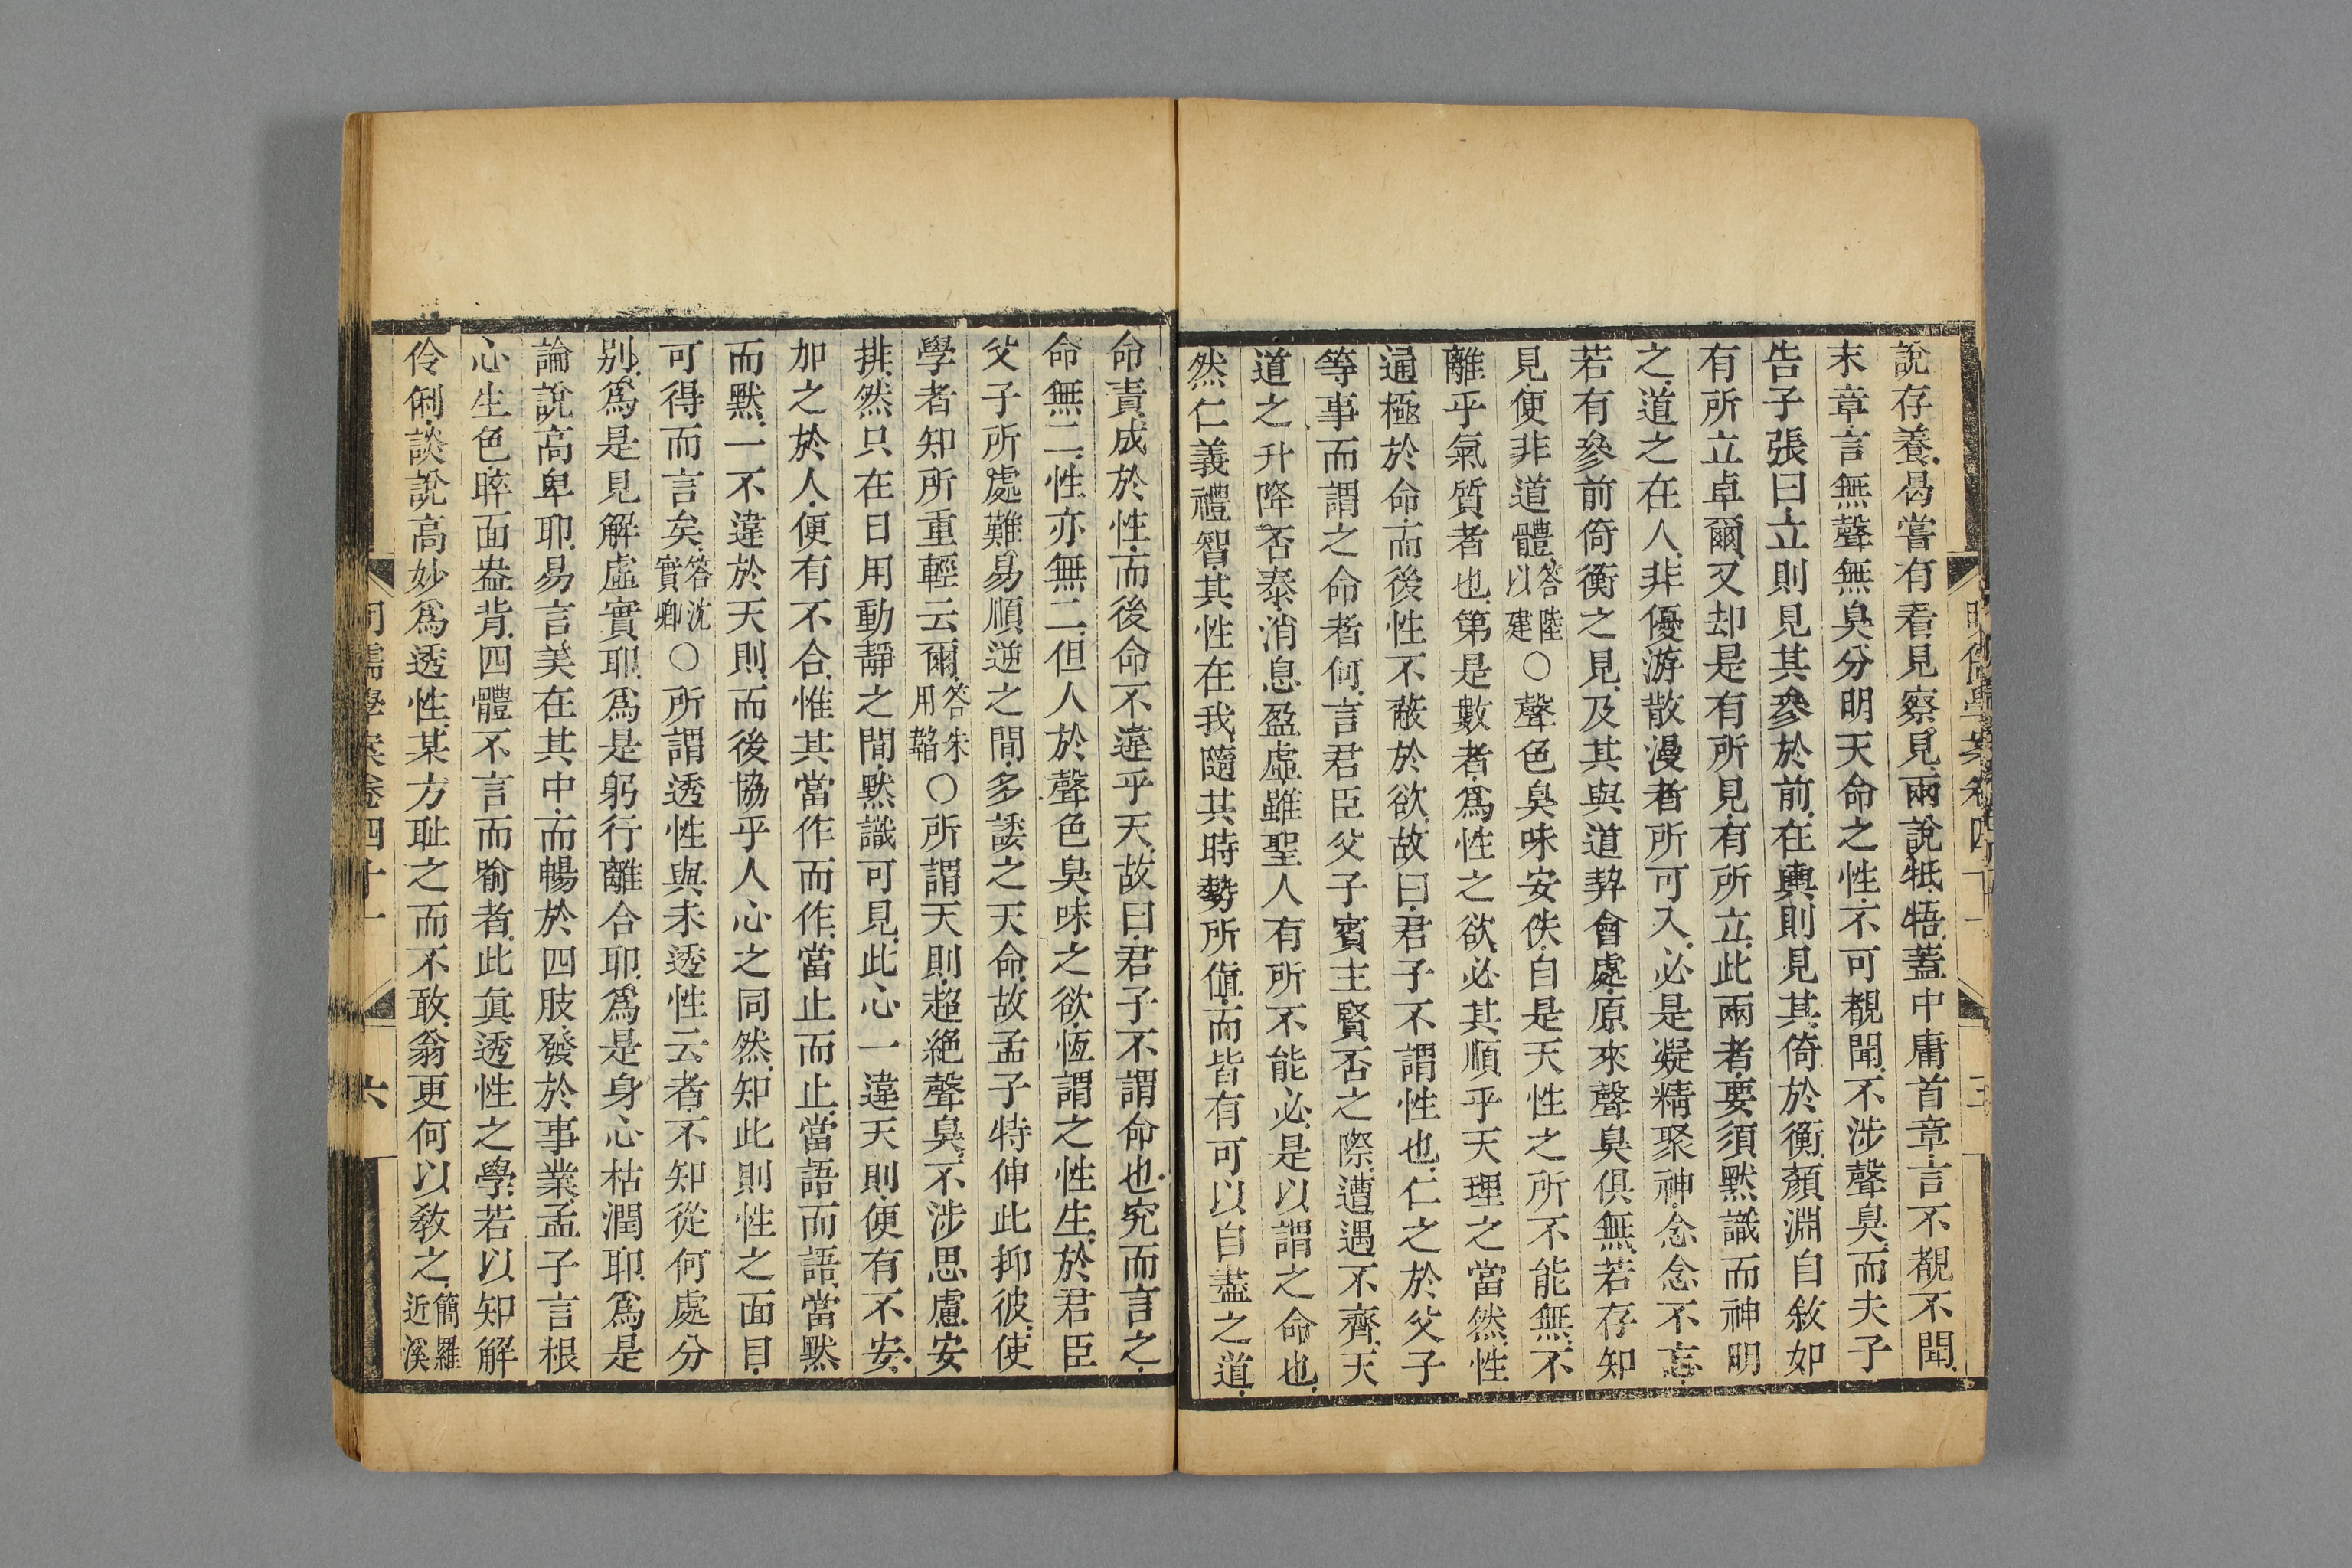 說存養曷嘗有看見察見兩說牴牾蓋中庸首章言不覩不聞
末章言無聲無臭分明天命之性不可覩聞不涉聲臭而夫子
告子張曰立則見其參於前在輿則見其倚於衡顏淵自敘如
有所立卓爾又却是有所見有所立此兩者要須默識而神明
之道之在人非優游散漫者所可入必是凝精聚神念念不忘
若有參前倚衡之見及其與道契會處原來聲臭俱無若存知
見便非道體答陸以建○聲色臭味安佚自是天性之所不能無不
離乎氣質者也第是數者爲性之欲必其順乎天理之當然性
通極於命而後性不蔽於欲故曰君子不謂性也仁之於父子
等事而謂之命者何言君臣父子賓主賢否之際遭遇不齊天
道之升降否泰消息盈虛雖聖人有所不能必是以謂之命也
然仁義禮智其性在我隨其時勢所値而皆有可以自盡之道
命責成於性而後命不違乎天故曰君子不謂命也究而言之
命無二性亦無二但人於聲色臭味之欲恆謂之性生於君臣
父子所處難易順逆之間多諉之天命故孟子特伸此抑彼使
學者知所重輕云爾答朱用韜○所謂天則超絕聲臭不涉思慮安
排然只在日用動靜之間默識可見此心一違天則便有不安
加之於人便有不合惟其當作而作當止而止當語而語當默
而默一不違於天則而後協乎人心之同然知此則性之面目
可得而言矣答沈實卿○所謂透性與未透性云者不知從何處分
别爲是見解虛實耶爲是躬行離合耶爲是身心枯潤耶爲是
論說高卑耶易言美在其中而暢於四肢發於事業孟子言根
心生色睟面盎背四體不言而喻者此眞透性之學若以知解
伶俐談說高妙爲透性某方耻之而不敢翁更何以敎之簡羅近溪
明儒學案卷四十一
六